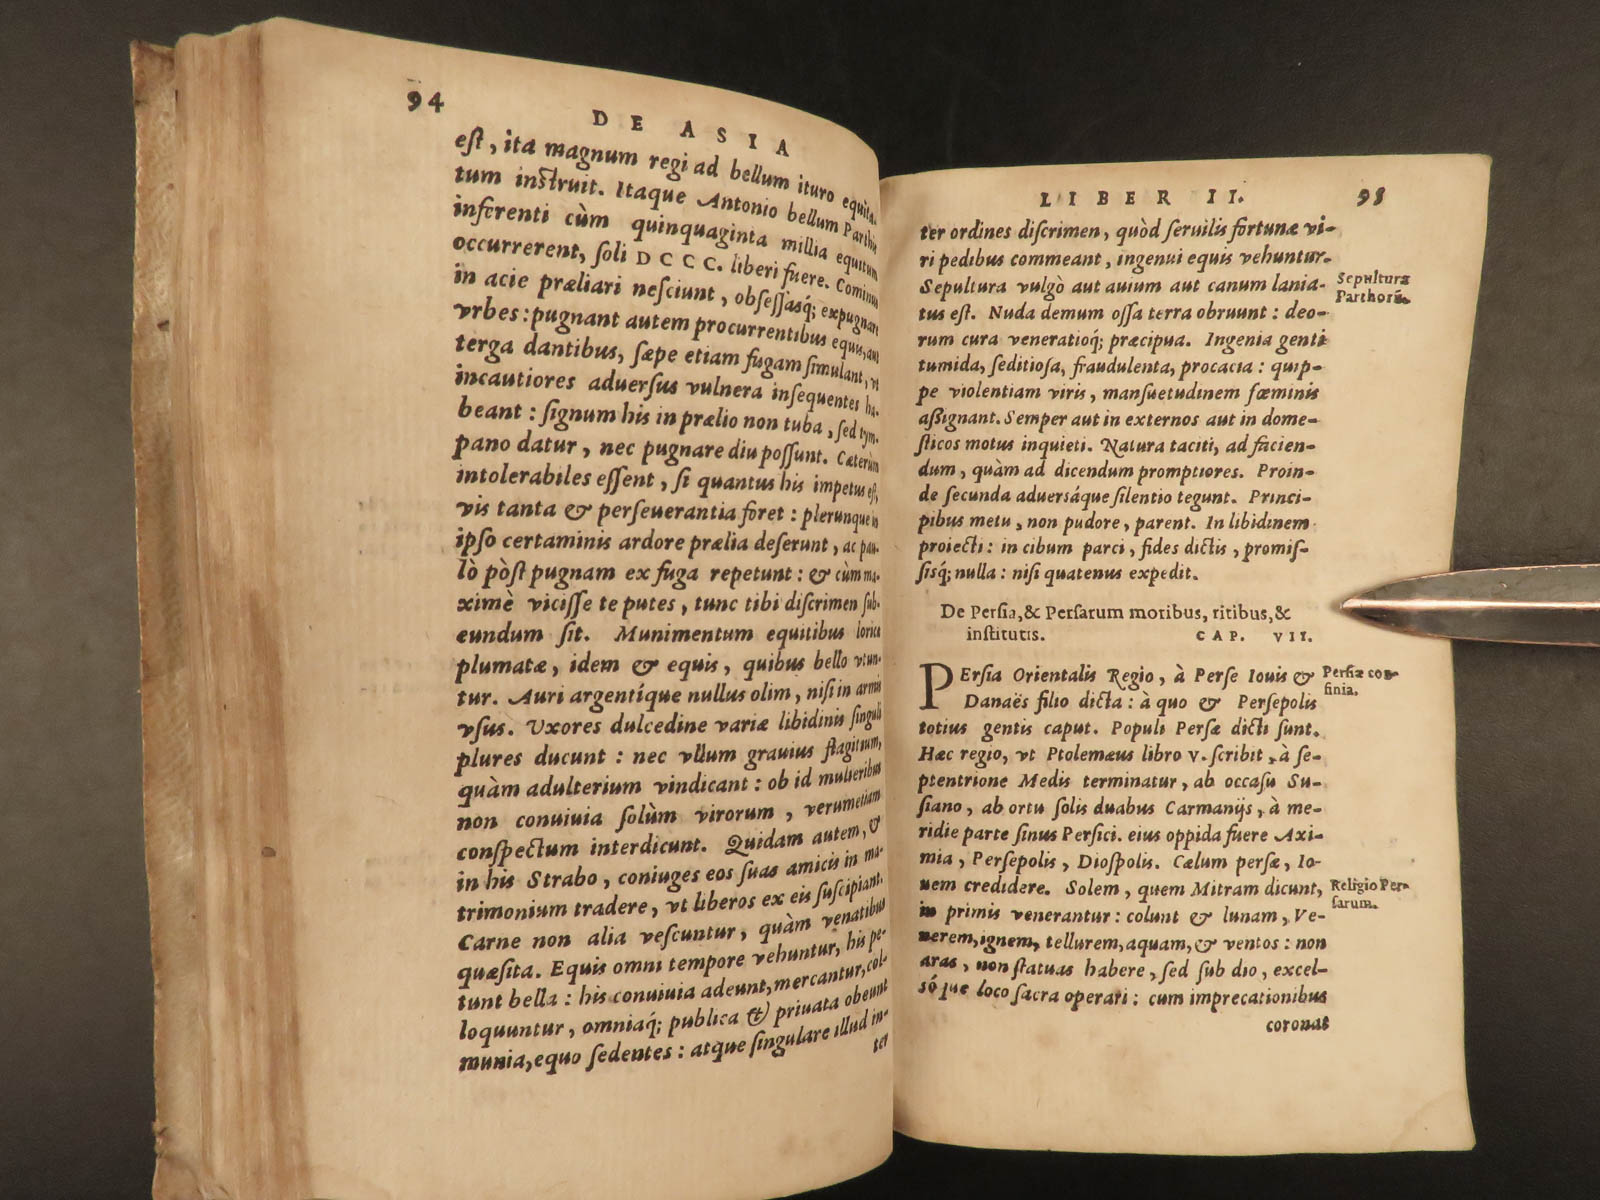 94
DE ASIA
est, ita magnum regi ad bellum ituro equita-
tum instruit. Itaque Antonio bellum Parthis
inferenti cùm quinquaginta millia equitum
occurrerent, soli DCCC. liberi fuere. Cominus
in acie præliari nesciunt, obsessasq́; expugnare
vrbes: pugnant autem procurrentibus equis, aut
terga dantibus, sæpe etiam fugam simulant, vt
incautiores aduersus vulnera insequentes ha-
beant: signum his in prælio non tuba, sed tym-
pano datur, nec pugnare diu possunt. Cæterùm
intolerabiles essent, si quantus his impetus est,
vis tanta & perseuerantia foret: plerunque in
ipso certaminis ardore prælia deserunt, ac pau-
lò pòst pugnam ex fuga repetunt: & cùm ma-
ximè vicisse te putes, tunc tibi discrimen sub-
eundum sit. Munimentum equitibus lorica
plumatæ, idem & equis, quibus bello vtun-
tur. Auri argentíque nullus olim, nisi in armis
vsus. Uxores dulcedine variæ libidinis singuli
plures ducunt: nec vllum grauius flagitium,
quàm adulterium vindicant: ob id mulieribus
non conuiuia solùm virorum, verumetiam
conspectum interdicunt. Quidam autem, &
in his Strabo, coniuges eos suas amicis in ma-
trimonium tradere, vt liberos ex eis suscipiant.
Carne non alia vescuntur, quàm venatibus
quæsita. Equis omni tempore vehuntur, his pe-
tunt bella: his conuiuia adeunt, mercantur, col-
loquuntur, omniaq́; publica & priuata obeunt
munia, equo sedentes: atque singulare illud in-
ter
LIBER II.
95
ter ordines discrimen, quòd seruilis fortunæ vi-
ri pedibus commeant, ingenui equis vehuntur.
Sepultura vulgò aut auium aut canum lania-
Sepultura
Parthorū.
tus est. Nuda demum ossa terra obruunt: deo-
rum cura veneratioq́; præcipua. Ingenia genti
tumida, seditiosa, fraudulenta, procacia: quip-
pe violentiam viris, mansuetudinem fœminis
assignant. Semper aut in externos aut in dome-
sticos motus inquieti. Natura taciti, ad facien-
dum, quàm ad dicendum promptiores. Proin-
de secunda aduersáque silentio tegunt. Princi-
pibus metu, non pudore, parent. In libidinem
proiecti: in cibum parci, fides dictis, promis-
sisq́; nulla: nisi quatenus expedit.
De Persia, & Persarum moribus, ritibus, &
institutis. CAP. VII.
PErsia Orientalis Regio, à Perse Iouis &
Persiæ con-
finia.
Danaës filio dicta: à quo & Persepolis
totius gentis caput. Populi Persæ dicti sunt.
Hæc regio, vt Ptolemæus libro V. scribit, à se-
ptentrione Medis terminatur, ab occasu Su-
siano, ab ortu solis duabus Carmanijs, à me-
ridie parte sinus Persici. eius oppida fuere Axi-
mia, Persepolis, Diospolis. Cælum persæ, Io-
uem credidere. Solem, quem Mitram dicunt,
Religio Per-
sarum.
in primis venerantur: colunt & lunam, Ve-
nerem, ignem, tellurem, aquam, & ventos: non
aras, non statuas habere, sed sub dio, excel-
sóque loco sacra operari: cum imprecationibus
coronat